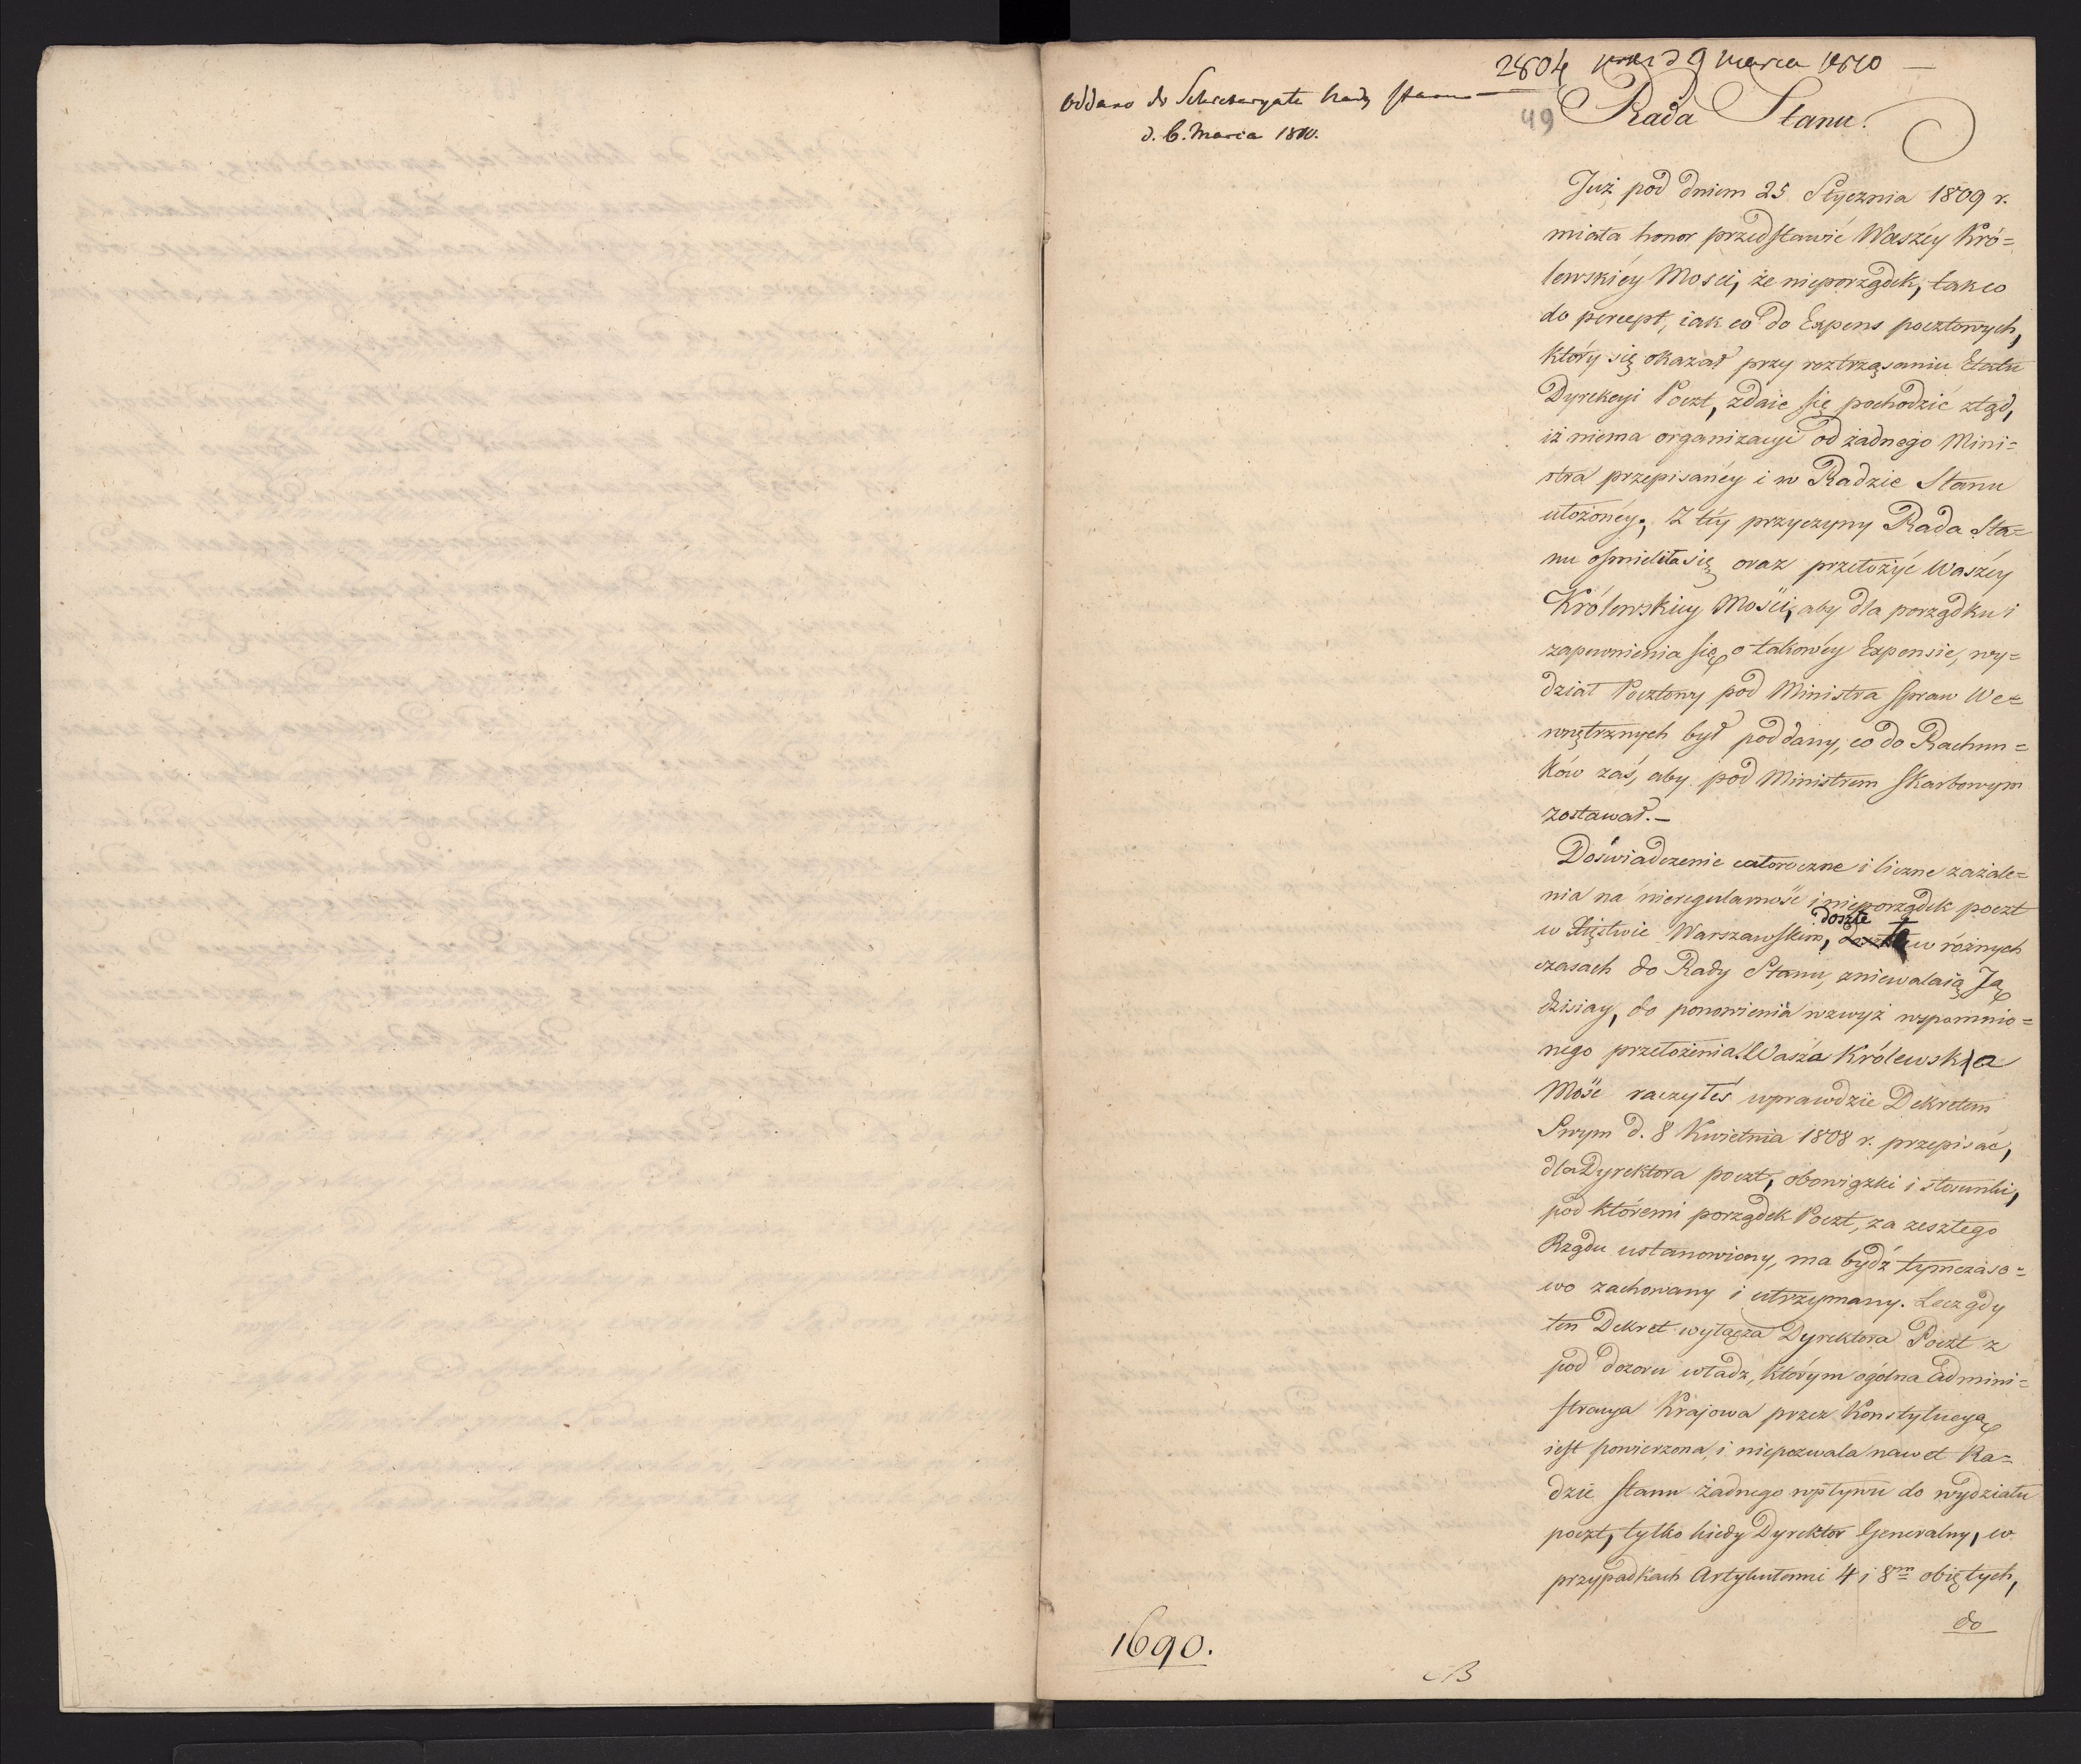 2804 d 9 Marca 1810 —
Oddano do Sekretaryatu Rady Stanu
d. 6. Marca 1810.
49
Rada Stanu.
Już pod dniem 25 Stycznia 1809 r.
miała honor przedstawić Waszéy Kró=
lewskiéy Mosci, że nieporządek, tak co
do percept, iak co do Expens pocztowych,
który się okazał przy roztrząsaniu Etatu
Dyrekcyi Poczt, zdaie się pochodzić ztąd,
iż niema organizacyi od żadnego Mini=
stra przepisanéy i w Radzie Stanu
ułożonéy; Z téy przyczyny Rada Sta=
nu ośmieliła się oraz przełożyć Waszéy
Królewskiey Mości, aby dla porządku i
zapewnienia się o takowéy Expensie, wy=
dział Pocztowy pod Ministra Spraw We=
wnętrznych był poddany, co do Rachun=
ków zaś, aby pod Ministrem Skarbowym
zostawał.—
Doświadczenie całoroczne i liczne zażale=
nia na nieregularność i nieporządek poczt
w Xięstwie Warszawskim, doszłe w różnych
czasach do Rady Stanu, zniewalaią Ją
dzisiay, do ponowienia wzwyż wspomnio=
nego przełożenia. Wasza Królewska
Mość raczyłeś wprawdzie Dekretem
Swym d. 8 Kwietnia 1808 r. przepisać,
dla Dyrektora poczt, obowiązki i stosunki,
pod któremi porządek Poczt, za zeszłego
Rządu ustanowiony, ma bydź tymczaso=
wo zachowany i utrzymany. Lecz gdy
ten Dekret wyłącza Dyrektora Poczt z
pod dozoru władz, którym ogólna Admini=
stracya Krajowa przez Konstytucyą
iest powierzona, i niepozwala nawet Ra=
dzie Stanu żadnego wpływu do wydziału
poczt, tylko kiedy Dyrektor Generalny, w
przypadkach Artykułemi 4 i 8m obiętych,
do
1690.